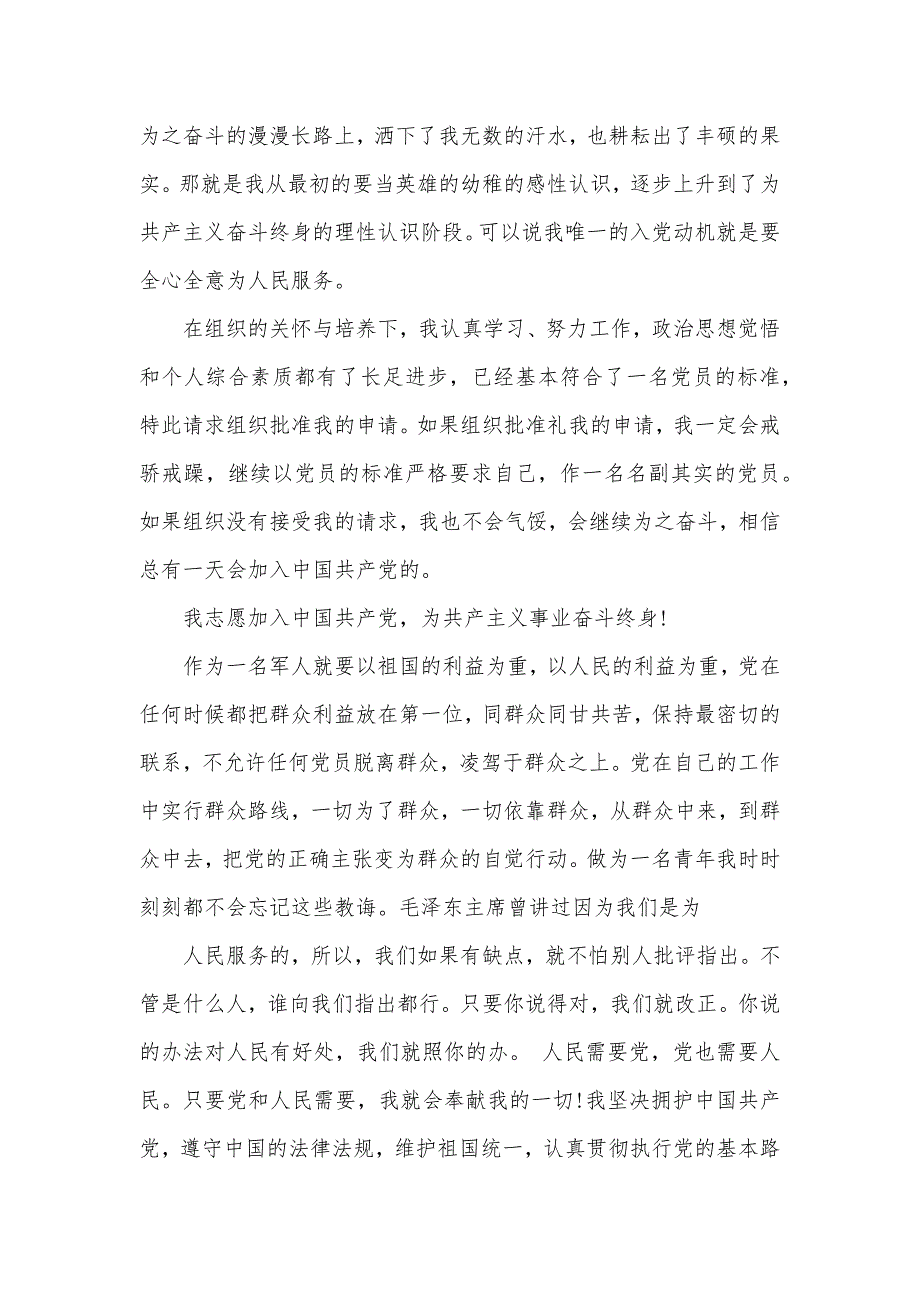 为之奋斗的漫漫长路上，洒下了我无数的汗水，也耕耘出了丰硕的果
实。那就是我从最初的要当英雄的幼稚的感性认识，逐步上升到了为
共产主义奋斗终身的理性认识阶段。可以说我唯一的入党动机就是要
全心全意为人民服务。
在组织的关怀与培养下，我认真学习、努力工作，政治思想觉悟
和个人综合素质都有了长足进步，已经基本符合了一名党员的标准，
特此请求组织批准我的申请。如果组织批准礼我的申请，我一定会戒
骄戒躁，继续以党员的标准严格要求自己，作一名名副其实的党员。
如果组织没有接受我的请求，我也不会气馁，会继续为之奋斗，相信
总有一天会加入中国共产党的。
我志愿加入中国共产党，为共产主义事业奋斗终身!
作为一名军人就要以祖国的利益为重，以人民的利益为重，党在
任何时候都把群众利益放在第一位，同群众同甘共苦，保持最密切的
联系，不允许任何党员脱离群众，凌驾于群众之上。党在自己的工作
中实行群众路线，一切为了群众，一切依靠群众，从群众中来，到群
众中去，把党的正确主张变为群众的自觉行动。做为一名青年我时时
刻刻都不会忘记这些教诲。毛泽东主席曾讲过因为我们是为
人民服务的，所以，我们如果有缺点，就不怕别人批评指出。不
管是什么人，谁向我们指出都行。只要你说得对，我们就改正。你说
的办法对人民有好处，我们就照你的办。 人民需要党，党也需要人
民。只要党和人民需要，我就会奉献我的一切!我坚决拥护中国共产
党，遵守中国的法律法规，维护祖国统一，认真贯彻执行党的基本路